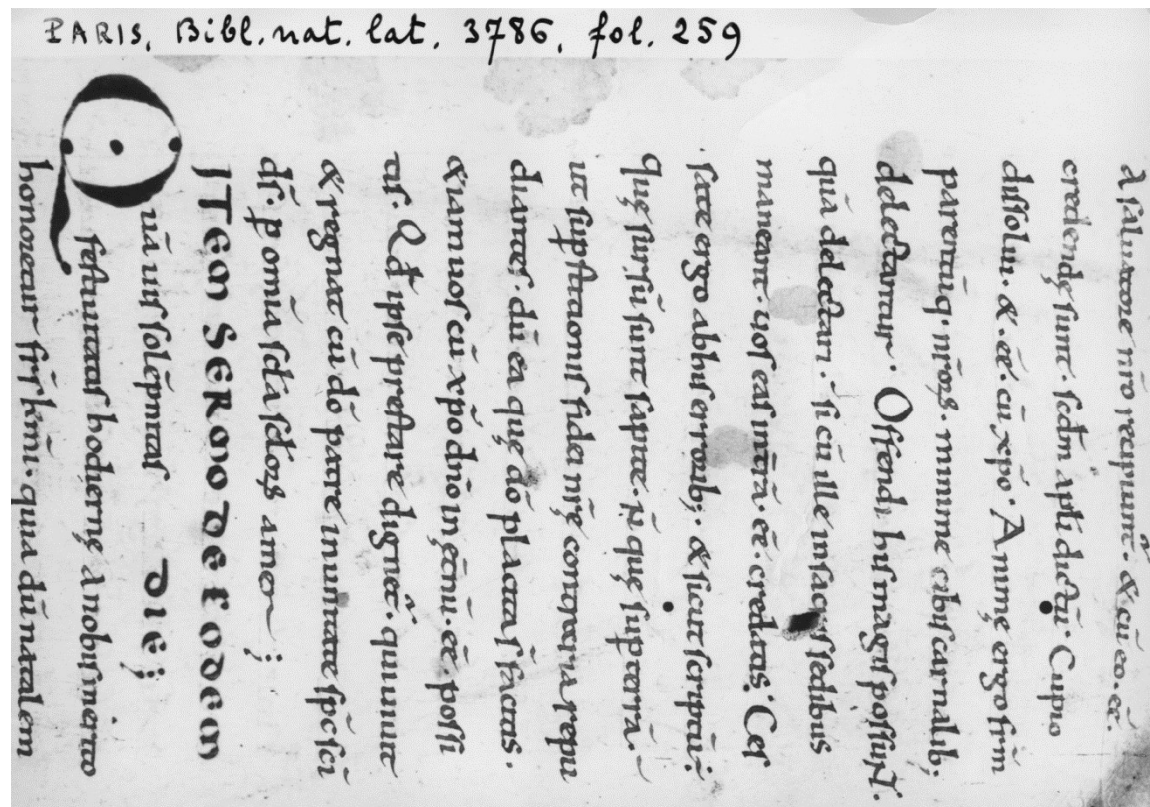 PARIS, Bibl. nat. lat. 3786, fol. 259
a saluatore nr̄o recipiunt̄. & cū eo. eē
credendę sunt. scd̄m apłi dictū. Cupio
dissolui. & eē. cū xp̄o. Animę ergo frm̄
parentūq nr̄oꝝ. minime cibis carnalib;
delectantur. Offendi his magis possunt.
quā delectari. si cū ille in sacis sedibus
maneant. uos eas intrā. eē. credatis. Ces
sate ergo ab his errorib;. & sicut scriptū.
quę sursū sunt sapite. n̄ quę sup terrā.
ut supstitionis fidē nr̄ę contraria repu
diantes. dū ea quę dō placita s facitis.
&iam uos cū xp̄o dn̄o in ęt̄nū. eē possi
tis. Qd̄ ipse prestare dignet̄. qui uiuit
& regnat cū dō patre in unitate sp̄c sc̄i
ds̄. ꝑ omīa sc̄la sc̄loꝝ amen;
ITEM SERMO DE EODEM
Quā uis solēpnitas DIE;
festiuitatis hodiernę a nobis merito
honoretur fr̄s km̄i. quia dū natalem